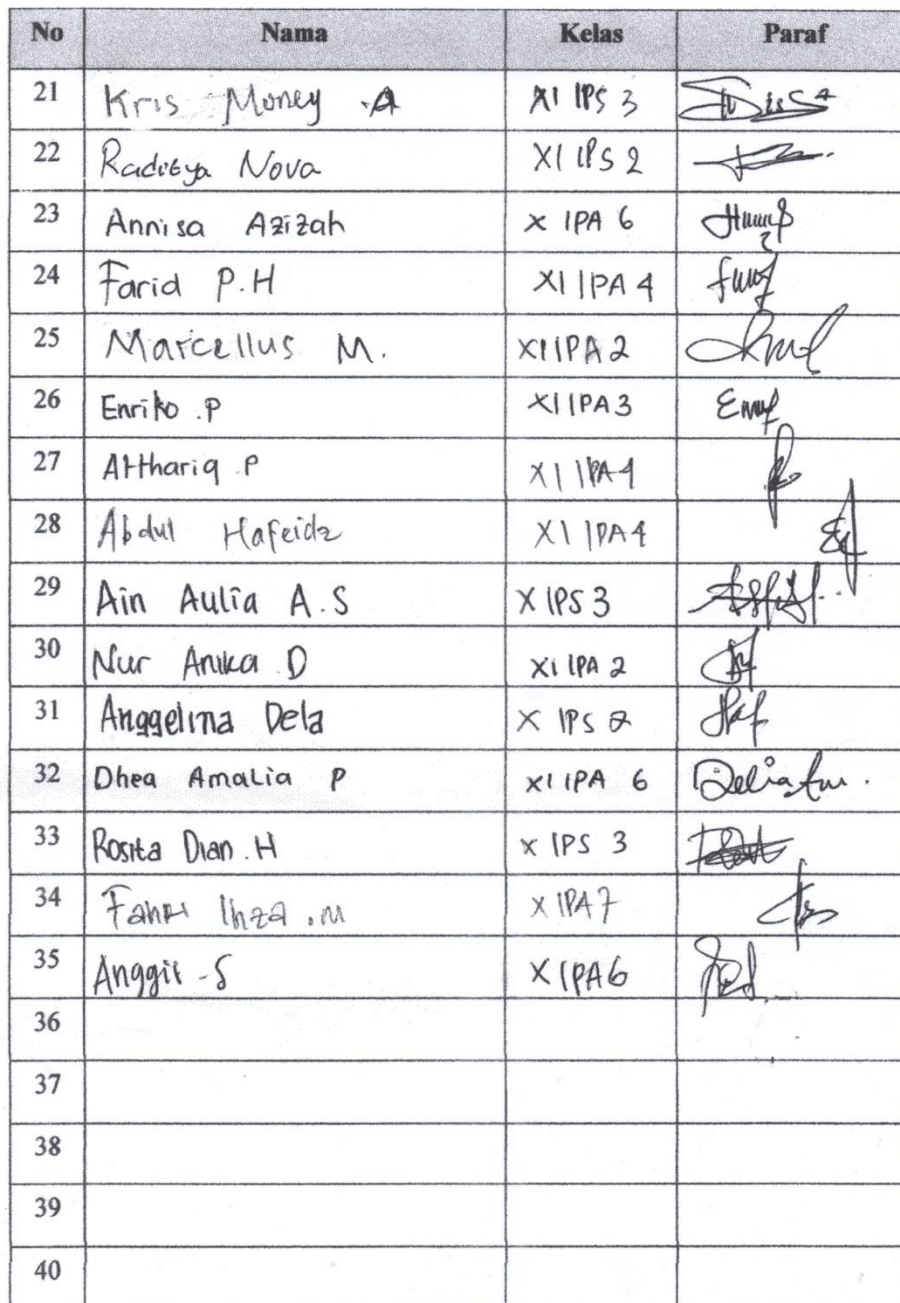 No Nama Kelas Paraf
21 Kris Money .A XI IPS 3
22 Raditya Nova XI IPS 2
23 Annisa Azizah X IPA 6
24 Farid P.H XI IPA 4
25 Marcellus M. XI IPA 2
26 Enriko .P XI IPA 3
27 Atthariq .P XI IPA 4
28 Abdul Hafeidz XI IPA 4
29 Ain Aulia A.S X IPS 3
30 Nur Anika D XI IPA 2
31 Anggelina Dela X IPS 2
32 Dhea Amalia P XI IPA 6
33 Rosita Dian .H X IPS 3
34 Fahri Ihza .M X IPA 7
35 Anggit .S X IPA 6
36
37
38
39
40